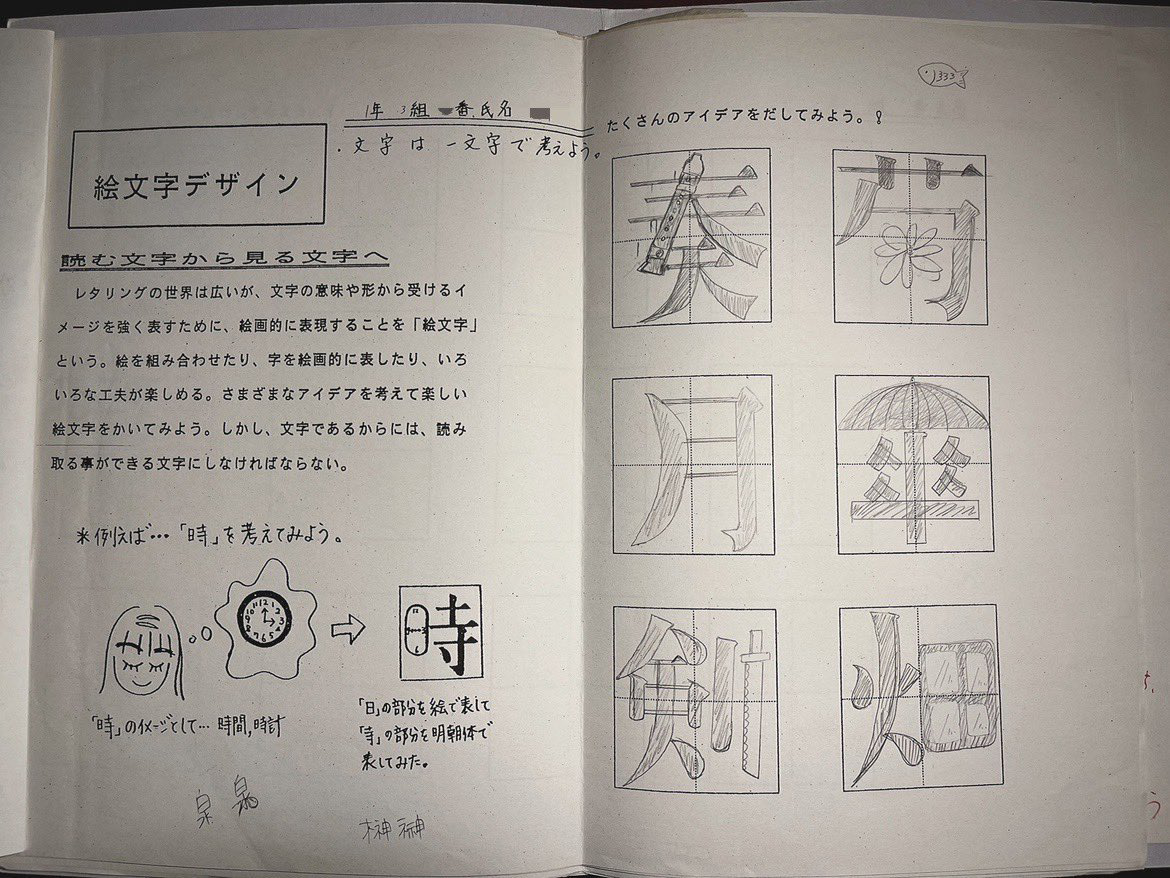 1年 3組 番 氏名
・文字は一文字で考えよう。
絵文字デザイン
読む文字から見る文字へ
レタリングの世界は広いが、文字の意味や形から受けるイ
メージを強く表すために、絵画的に表現することを「絵文字」
という。絵を組み合わせたり、字を絵画的に表したり、いろ
いろな工夫が楽しめる。さまざまなアイデアを考えて楽しい
絵文字をかいてみよう。しかし、文字であるからには、読み
取る事ができる文字にしなければならない。
＊例えば…「時」を考えてみよう。
時
「時」のイメージとして… 時間,時計
「日」の部分を絵で表して
「寺」の部分を明朝体で
表してみた。
泉
榊
333
たくさんのアイデアをだしてみよう。!
奏 菊
月 傘
剣 畑